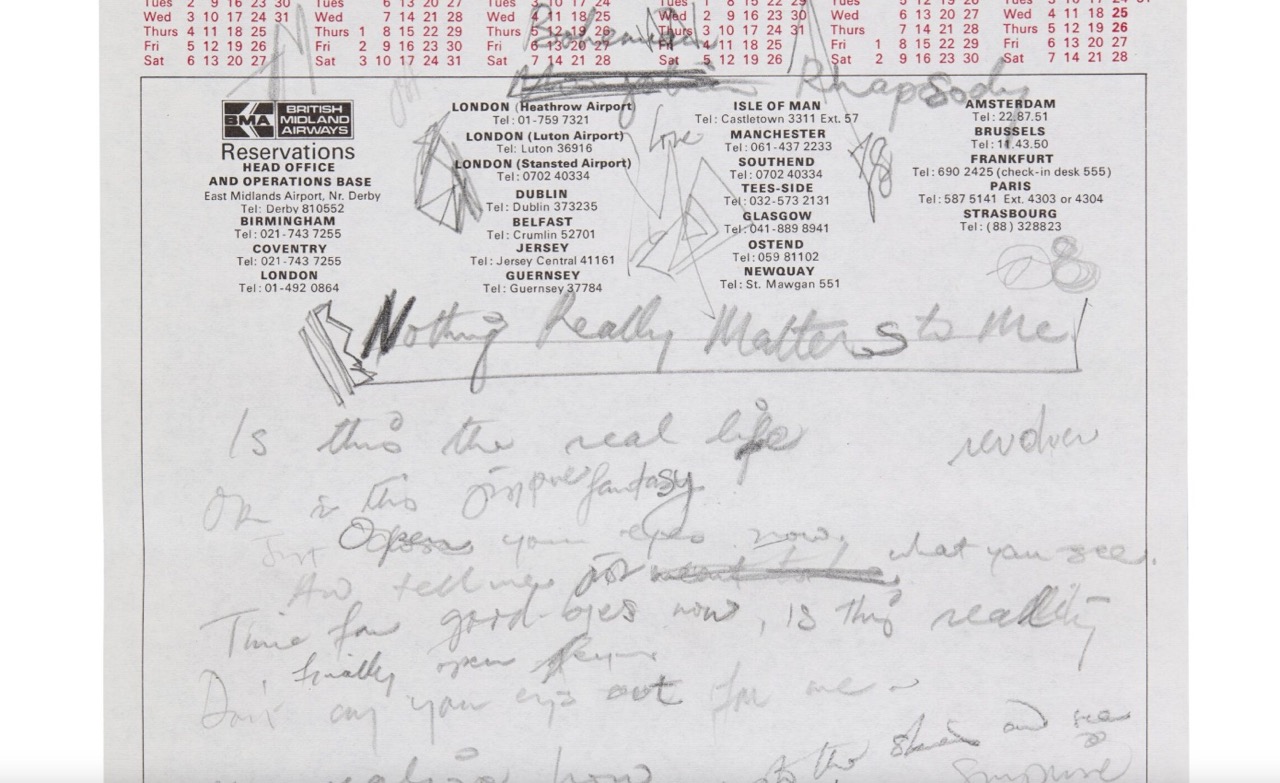 Tues 2 9 16 23 30 Tues 6 13 20 27 Tues 3 10 17 24 Tues 1 8 15 22 29 Tues 5 12 19 26 Tues 3 10 17 24 31
Wed 3 10 17 24 31 Wed 7 14 21 28 Wed 4 11 18 25 Wed 2 9 16 23 30 Wed 6 13 20 27 Wed 4 11 18 25
Thurs 4 11 18 25 Thurs 1 8 15 22 29 Thurs 5 12 19 26 Thurs Thurs 7 14 21 28 Thurs 5 12 19 26
Fri 5 12 19 26 Fri 2 9 16 23 30 Fri 6 13 20 27 Fri 4 11 18 25 Fri 1 8 15 22 29 Fri 6 13 20 27
Sat 6 13 20 27 Sat 3 10 17 24 31 Sat 7 14 21 28 Sat 5 12 19 26 Sat 2 9 16 23 30 Sat 7 14 21 28
Bohemian
Rhapsody
BMA BRITISH
MIDLAND
AIRWAYS
Reservations
HEAD OFFICE
AND OPERATIONS BASE
East Midlands Airport, Nr. Derby
Tel: Derby 810552
BIRMINGHAM
Tel: 021-743 7255
COVENTRY
Tel: 021-743 7255
LONDON
Tel: 01-492 0864
LONDON (Heathrow Airport)
Tel: 01-759 7321
LONDON (Luton Airport)
Tel: Luton 36916
LONDON (Stansted Airport)
Tel: 0702 40334
DUBLIN
Tel: Dublin 373235
BELFAST
Tel: Crumlin 52701
JERSEY
Tel: Jersey Central 41161
GUERNSEY
Tel: Guernsey 37784
Love
ISLE OF MAN
Tel: Castletown 3311 Ext. 57
MANCHESTER
Tel: 061-437 2233
SOUTHEND
Tel: 0702 40334
TEES-SIDE
Tel: 032-573 2131
GLASGOW
Tel: 041-889 8941
OSTEND
Tel: 059 81102
NEWQUAY
Tel: St. Mawgan 551
AMSTERDAM
Tel: 22.87.51
BRUSSELS
Tel: 11.43.50
FRANKFURT
Tel: 690 2425 (check-in desk 555)
PARIS
Tel: 587 5141 Ext. 4303 or 4304
STRASBOURG
Tel: (88) 328823
Nothing Really Matters to Me
Is this the real life
Or is this just fantasy
Just Open your eyes now, what you see.
And tell me
Time for good-byes now, is this reality
finally open
Don't cry your eyes out for me
to the skies and see